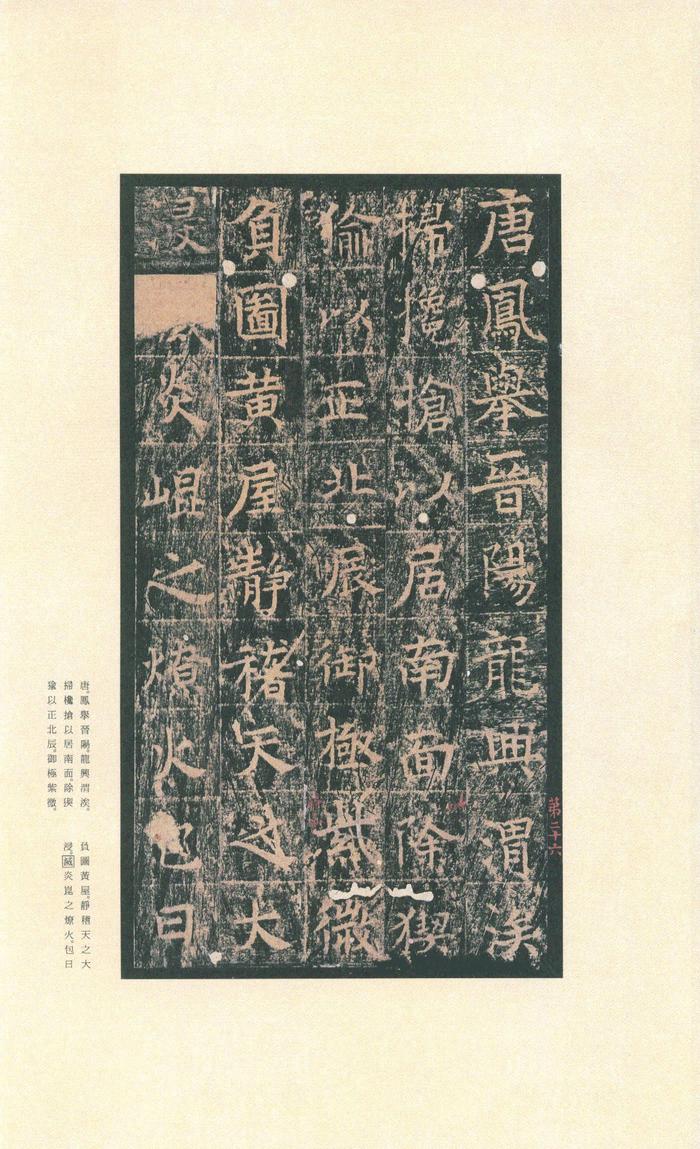 第二十六
唐鳳舉晉陽龍興渭涘
掃攙搶以居南面除猰
㺄以正北辰御極紫微
負圖黃屋靜稽天之大
浸炎崐之燎火包日
唐。鳳舉晉陽。龍興渭涘。
掃欃搶以居南面。除猰
㺄以正北辰。御極紫微。
負圖黃屋。靜稽天之大
浸。滅炎崑之燎火。包日